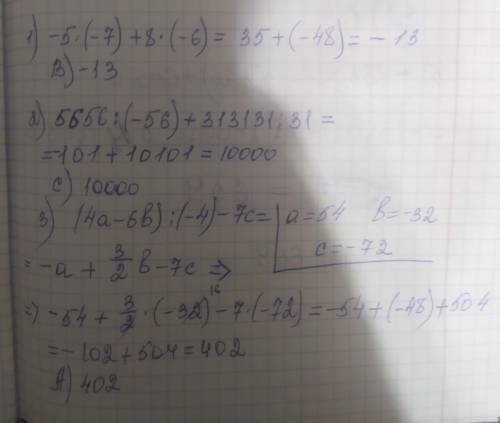 1) -5·(-7)+8·(-6)= 35+(-48)= -13
B) -13
2) 5656:(-56)+313131:31=
=-101+10101=10000
C) 10000
3) (4a-6b):(-4)-7c= | a=54 b=-32
c=-72
= -a + 3/2 b-7c ⇒
⇒ -54 + 3/2 ·(-32)¹⁶-7·(-72)=-54+(-48)+504
=-102+504=402
A) 402